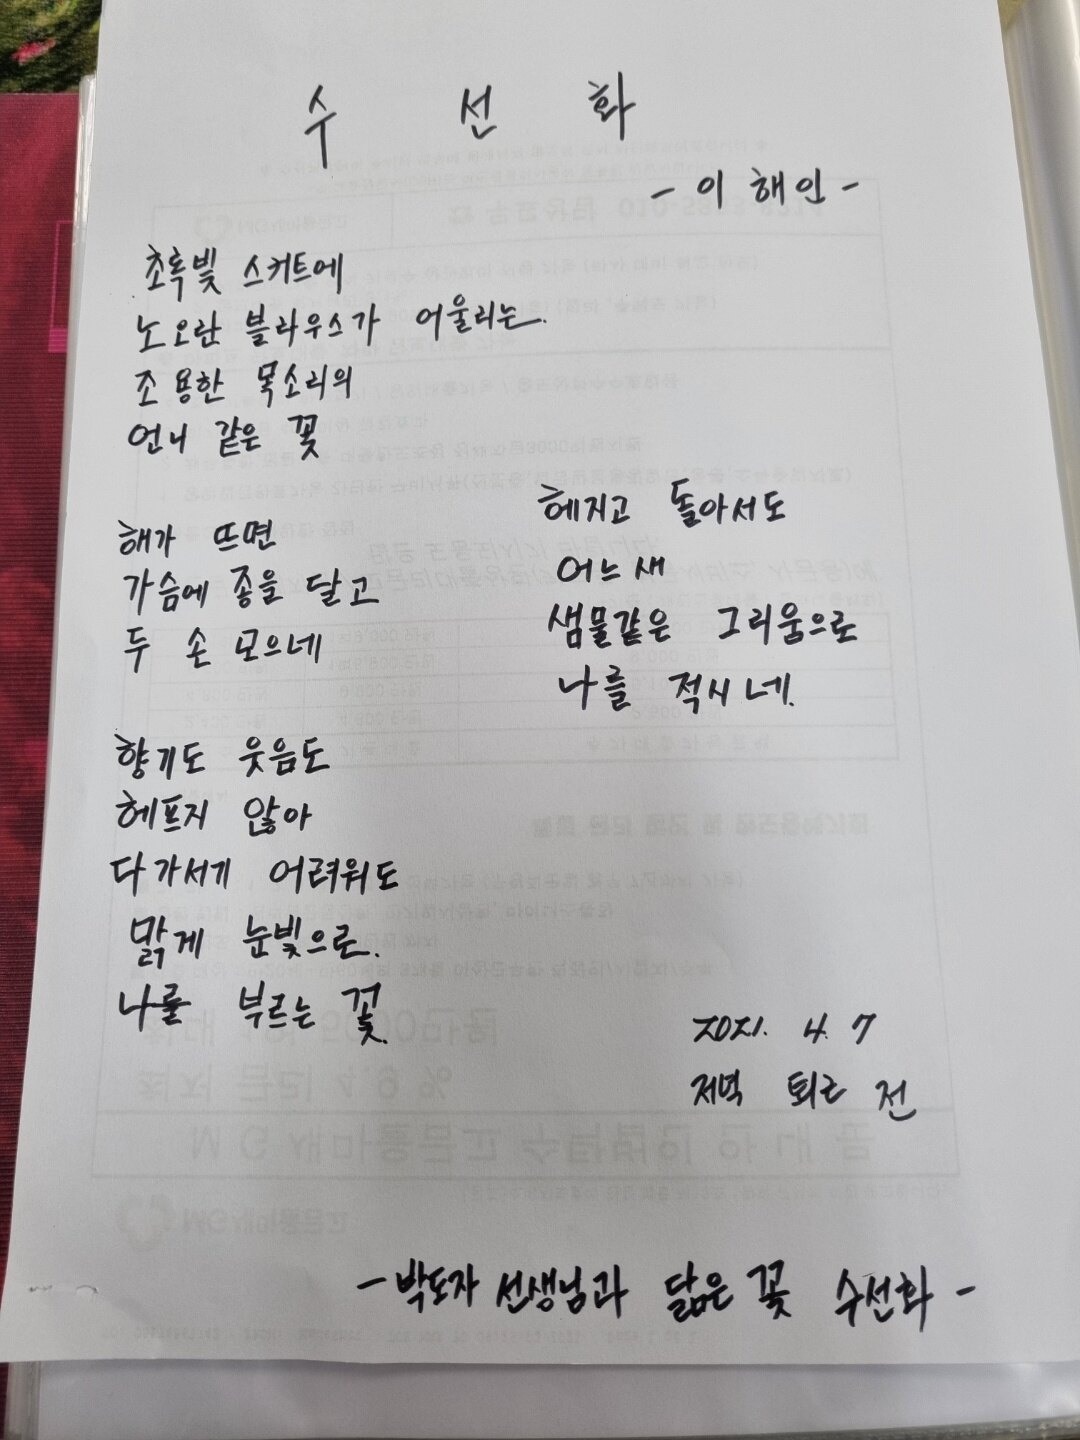 수 선 화
- 이 해인 -
초록빛 스커트에
노오란 블라우스가 어울리는.
조용한 목소리의
언니 같은 꽃
해가 뜨면
가슴에 종을 달고
두 손 모으네
향기도 웃음도
헤프지 않아
다가서기 어려워도
맑게 눈빛으로.
나를 부르는 꽃.
헤지고 돌아서도
어느새
샘물같은 그리움으로
나를 적시네.
2021. 4. 7
저녁 퇴근 전
- 박도자 선생님과 닮은 꽃 수선화 -